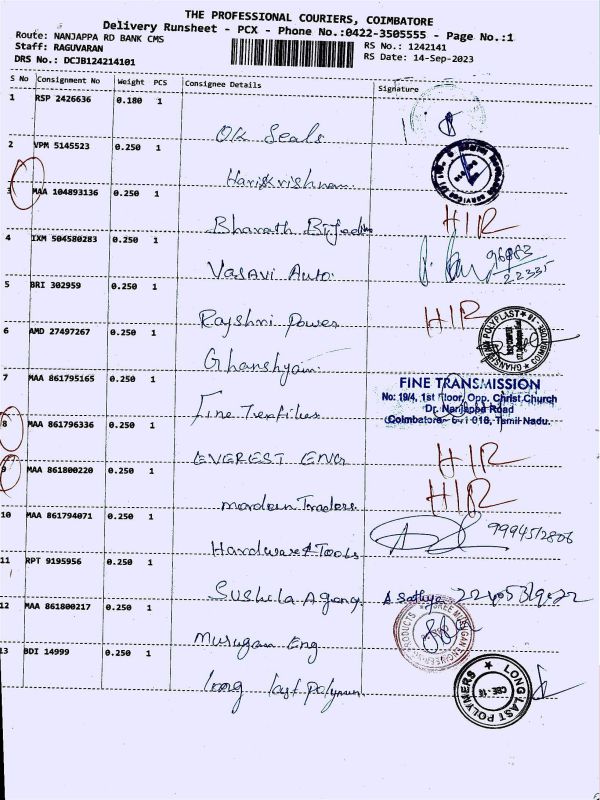 THE PROFESSIONAL COURIERS, COIMBATORE
Delivery Runsheet - PCX - Phone No.:0422-3505555 - Page No.:1
Route: NANJAPPA RD BANK CMS
Staff: RAGUVARAN
DRS No.: DCJB124214101
RS No.: 1242141
RS Date: 14-Sep-2023
S No Consignment No Weight PCS Consignee Details Signature
1 RSP 2426636 0.180 1
OK Seals
2 VPM 5145523 0.250 1
Harikrishnan
3 MAA 104893136 0.250 1
Bharath H/R
4 IXM 504580283 0.250 1
Vasavi Auto 96983
22335
5 BRI 302959 0.250 1
Rajshri Power H/R
6 AMD 27497267 0.250 1
Ghanshyam
7 MAA 861795165 0.250 1
FINE TRANSMISSION
No: 19/4, 1st Floor, Opp. Christ Church
Dr. Nanjappa Road
Coimbatore- 641 018, Tamil Nadu.
Fine
8 MAA 861796336 0.250 1
EVEREST ENG H/R
9 MAA 861800220 0.250 1
Mordern Traders H/R
10 MAA 861794071 0.250 1
Hardware & Tools 9994512806
11 RPT 9195956 0.250 1
Sushila Agency A Sathya
12 MAA 861800217 0.250 1
Murugan Eng
13 BDI 14999 0.250 1
long last Polymer
LONG LAST POLYMERS
CBE-18